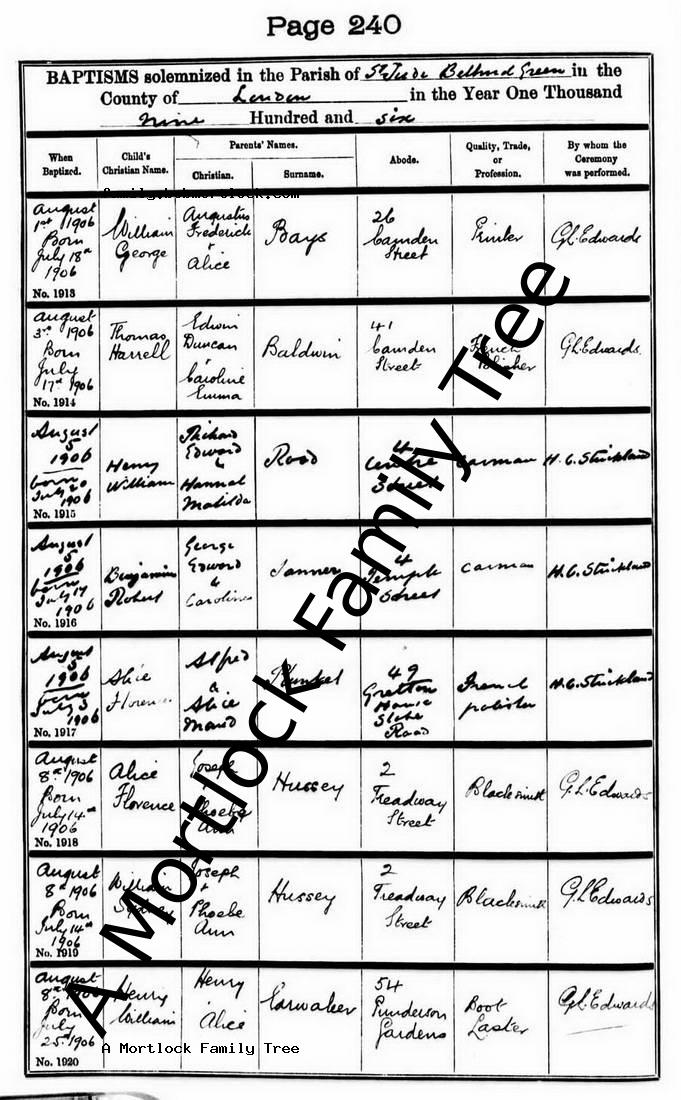 Page 240
BAPTISMS solemnized in the Parish of St Jude Bethnal Green in the
County of London in the Year One Thousand
nine Hundred and six
When Baptized.
Child's Christian Name.
Parents' Names.
Christian.
Surname.
Abode.
Quality, Trade, or Profession.
By whom the Ceremony was performed.
family.bobmortlock.com
August
1st 1906
Born
July 18th
1906
No. 1913
William
George
Augustus
Frederick
+
Alice
Bays
26
Camden
Street
Printer
G.L. Edwards
August
3rd 1906
Born
July
17th 1906
No. 1914
Thomas
Harrell
Edwin
Duncan
+
Caroline
Emma
Baldwin
41
Camden
Street
French
Polisher
G.L. Edwards.
August
5
1906
born
July 20
1906
No. 1915
Henry
William
Richard
Edward
&
Hannah
Matilda
Road
4
Centre
Street
Carman
H. C. Strickland
August
5
1906
born
July 17
1906
No. 1916
Benjamin
Robert
George
Edward
&
Caroline
Tanner
4
Temple
Street
Carman
H. C. Strickland
August
5
1906
born
July 3
1906
No. 1917
Alice
Florence
Alfred
&
Alice
Maud
49
Gretton
House
Globe
Road
French
polisher
H. C. Strickland
August
8th 1906
Born
July 14th
1906
No. 1918
Alice
Florence
Joseph
+
Phoebe
Ann
Hussey
2
Treadway
Street
Blacksmith
G. L. Edwards
August
8th 1906
Born
July 14th
1906
No. 1919
William
Sydney
Joseph
+
Phoebe
Ann
Hussey
2
Treadway
Street
Blacksmith
G. L. Edwards
August
8th 1906
Born
July
25th 1906
No. 1920
Henry
William
Henry
Alice
Earwaker
54
Punderson
Gardens
Boot
Laster
G. L. Edwards
A Mortlock Family Tree
A Mortlock Family Tree